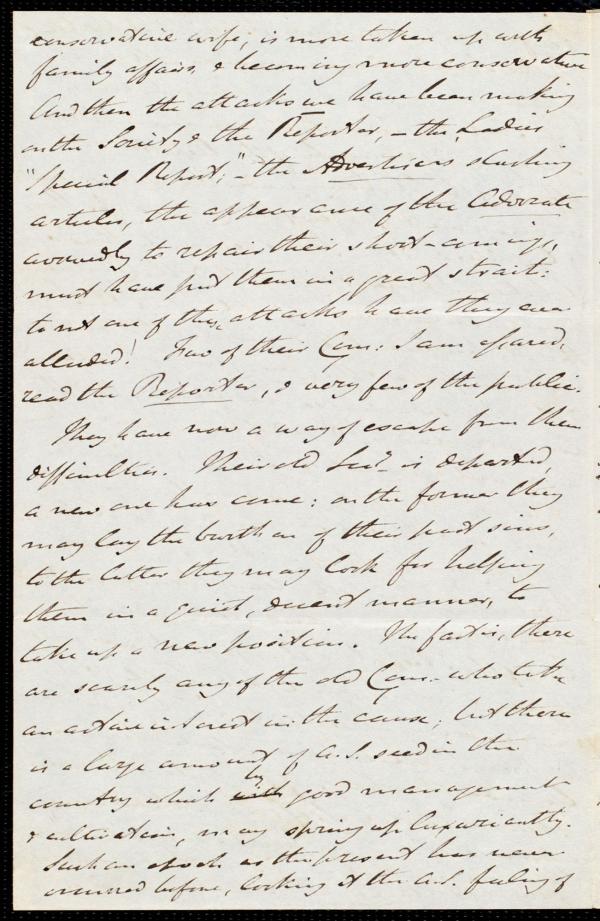 conservative wife, is more taken up with
family affairs, & becoming more conservative
And then the attacks we have been making
on the Society & the Reporter, – the Ladies
"Special Report," – the Advertisers slashing
articles, the appearance of the Advocate
avowedly to repair their short-comings,
must have put them in a great strait:
to not one of these attacks have they ever
alluded! Few of their Com: I am afraid,
read the Reporter, & very few of the public.
They have now a way of escape from their
difficulties. Their old Secy. is departed,
a new one has come: on the former they
may lay the burthen of their past sins,
to the latter they may look for helping
them in a quiet, decent manner, to
take up a new position. The fact is, there
are scarcely any of the old Com: who take
an active interest in the cause; but there
is a large amount of A.S. seed in the
country which with by good management
& cultivation, may spring up luxuriantly.
Such an epoch as the present has never
occurred before, looking at the A.S. feeling of